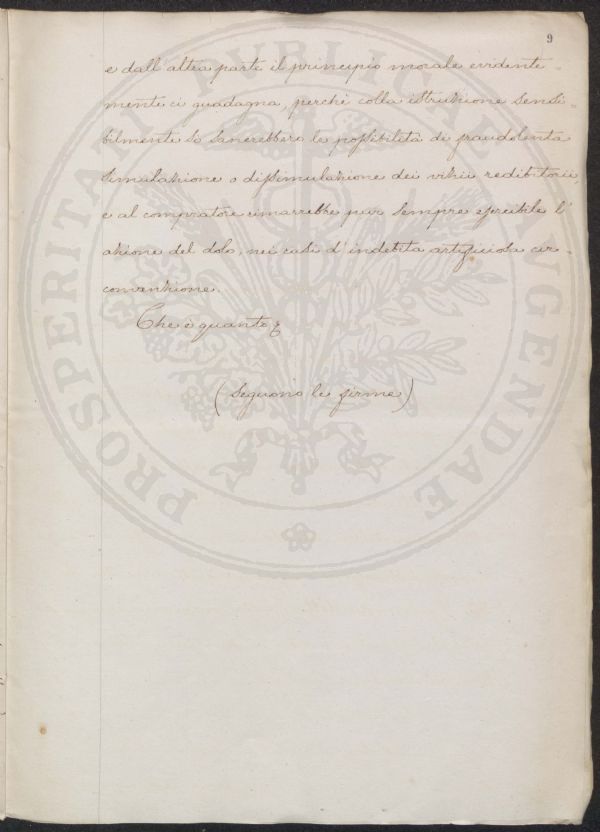 9
e dall'altra parte il principio morale evidente-
mente ci guadagna, perchè colla istruzione sensi-
bilmente si sanerebbero le possibilità di fraudolenta
simulazione o dissimulazione dei vizii redibitorii,
e al compratore rimarrebbe pur sempre esercibile l'
azione del dolo, nei casi d'indebita artificiosa cir-
convenzione.
Che è quanto &
(Seguono le firme)
PROSPERITATI PVBLICAE AVGENDAE